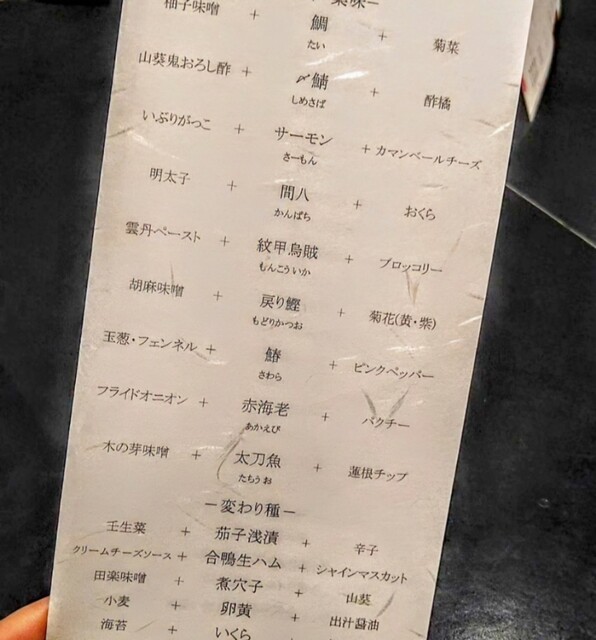 薬味ー
柚子味噌 + 鯛 + 菊菜
たい
山葵鬼おろし酢 + 〆鯖 + 酢橘
しめさば
いぶりがっこ + サーモン + カマンベールチーズ
さーもん
明太子 + 間八 + おくら
かんぱち
雲丹ペースト + 紋甲烏賊 + ブロッコリー
もんこういか
胡麻味噌 + 戻り鰹 + 菊花(黄・紫)
もどりかつお
玉葱・フェンネル + 鰆 + ピンクペッパー
さわら
フライドオニオン + 赤海老 + パクチー
あかえび
木の芽味噌 + 太刀魚 + 蓮根チップ
たちうお
ー変わり種ー
壬生菜 + 茄子浅漬 + 辛子
クリームチーズソース + 合鴨生ハム + シャインマスカット
田楽味噌 + 煮穴子 + 山葵
小麦 + 卵黄 + 出汁醤油
海苔 + いくら